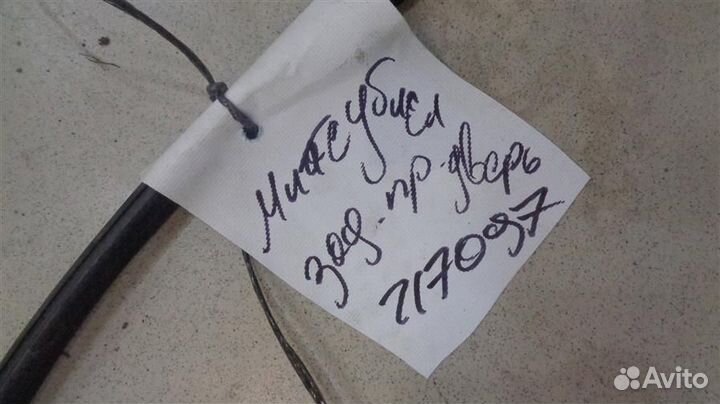 Митсубиси
зад. пр. дверь
717097
Avito